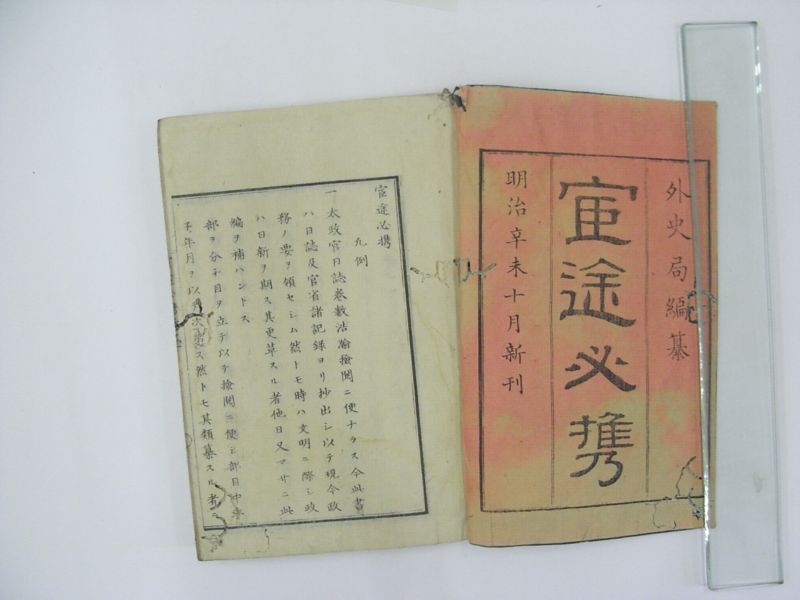 外史局編纂
宦途必携
明治辛未十月新刊
宦途必携
凡例
一太政官日誌巻数浩瀚撿閲ニ便ナラス今此書
ハ日誌及官省諸記録ヨリ抄出シ以テ現今政
務ノ要ヲ領セシム然トモ時ハ文明ニ際シ政
ハ日新ヲ期ス其更革スル者他日又マサニ此
編ヲ補ハントス
部ヲ分チ目ヲ立テ以テ撿閲ニ便シ部目中年
月ヲ以テ次第ス然トモ其類纂スル者ニ